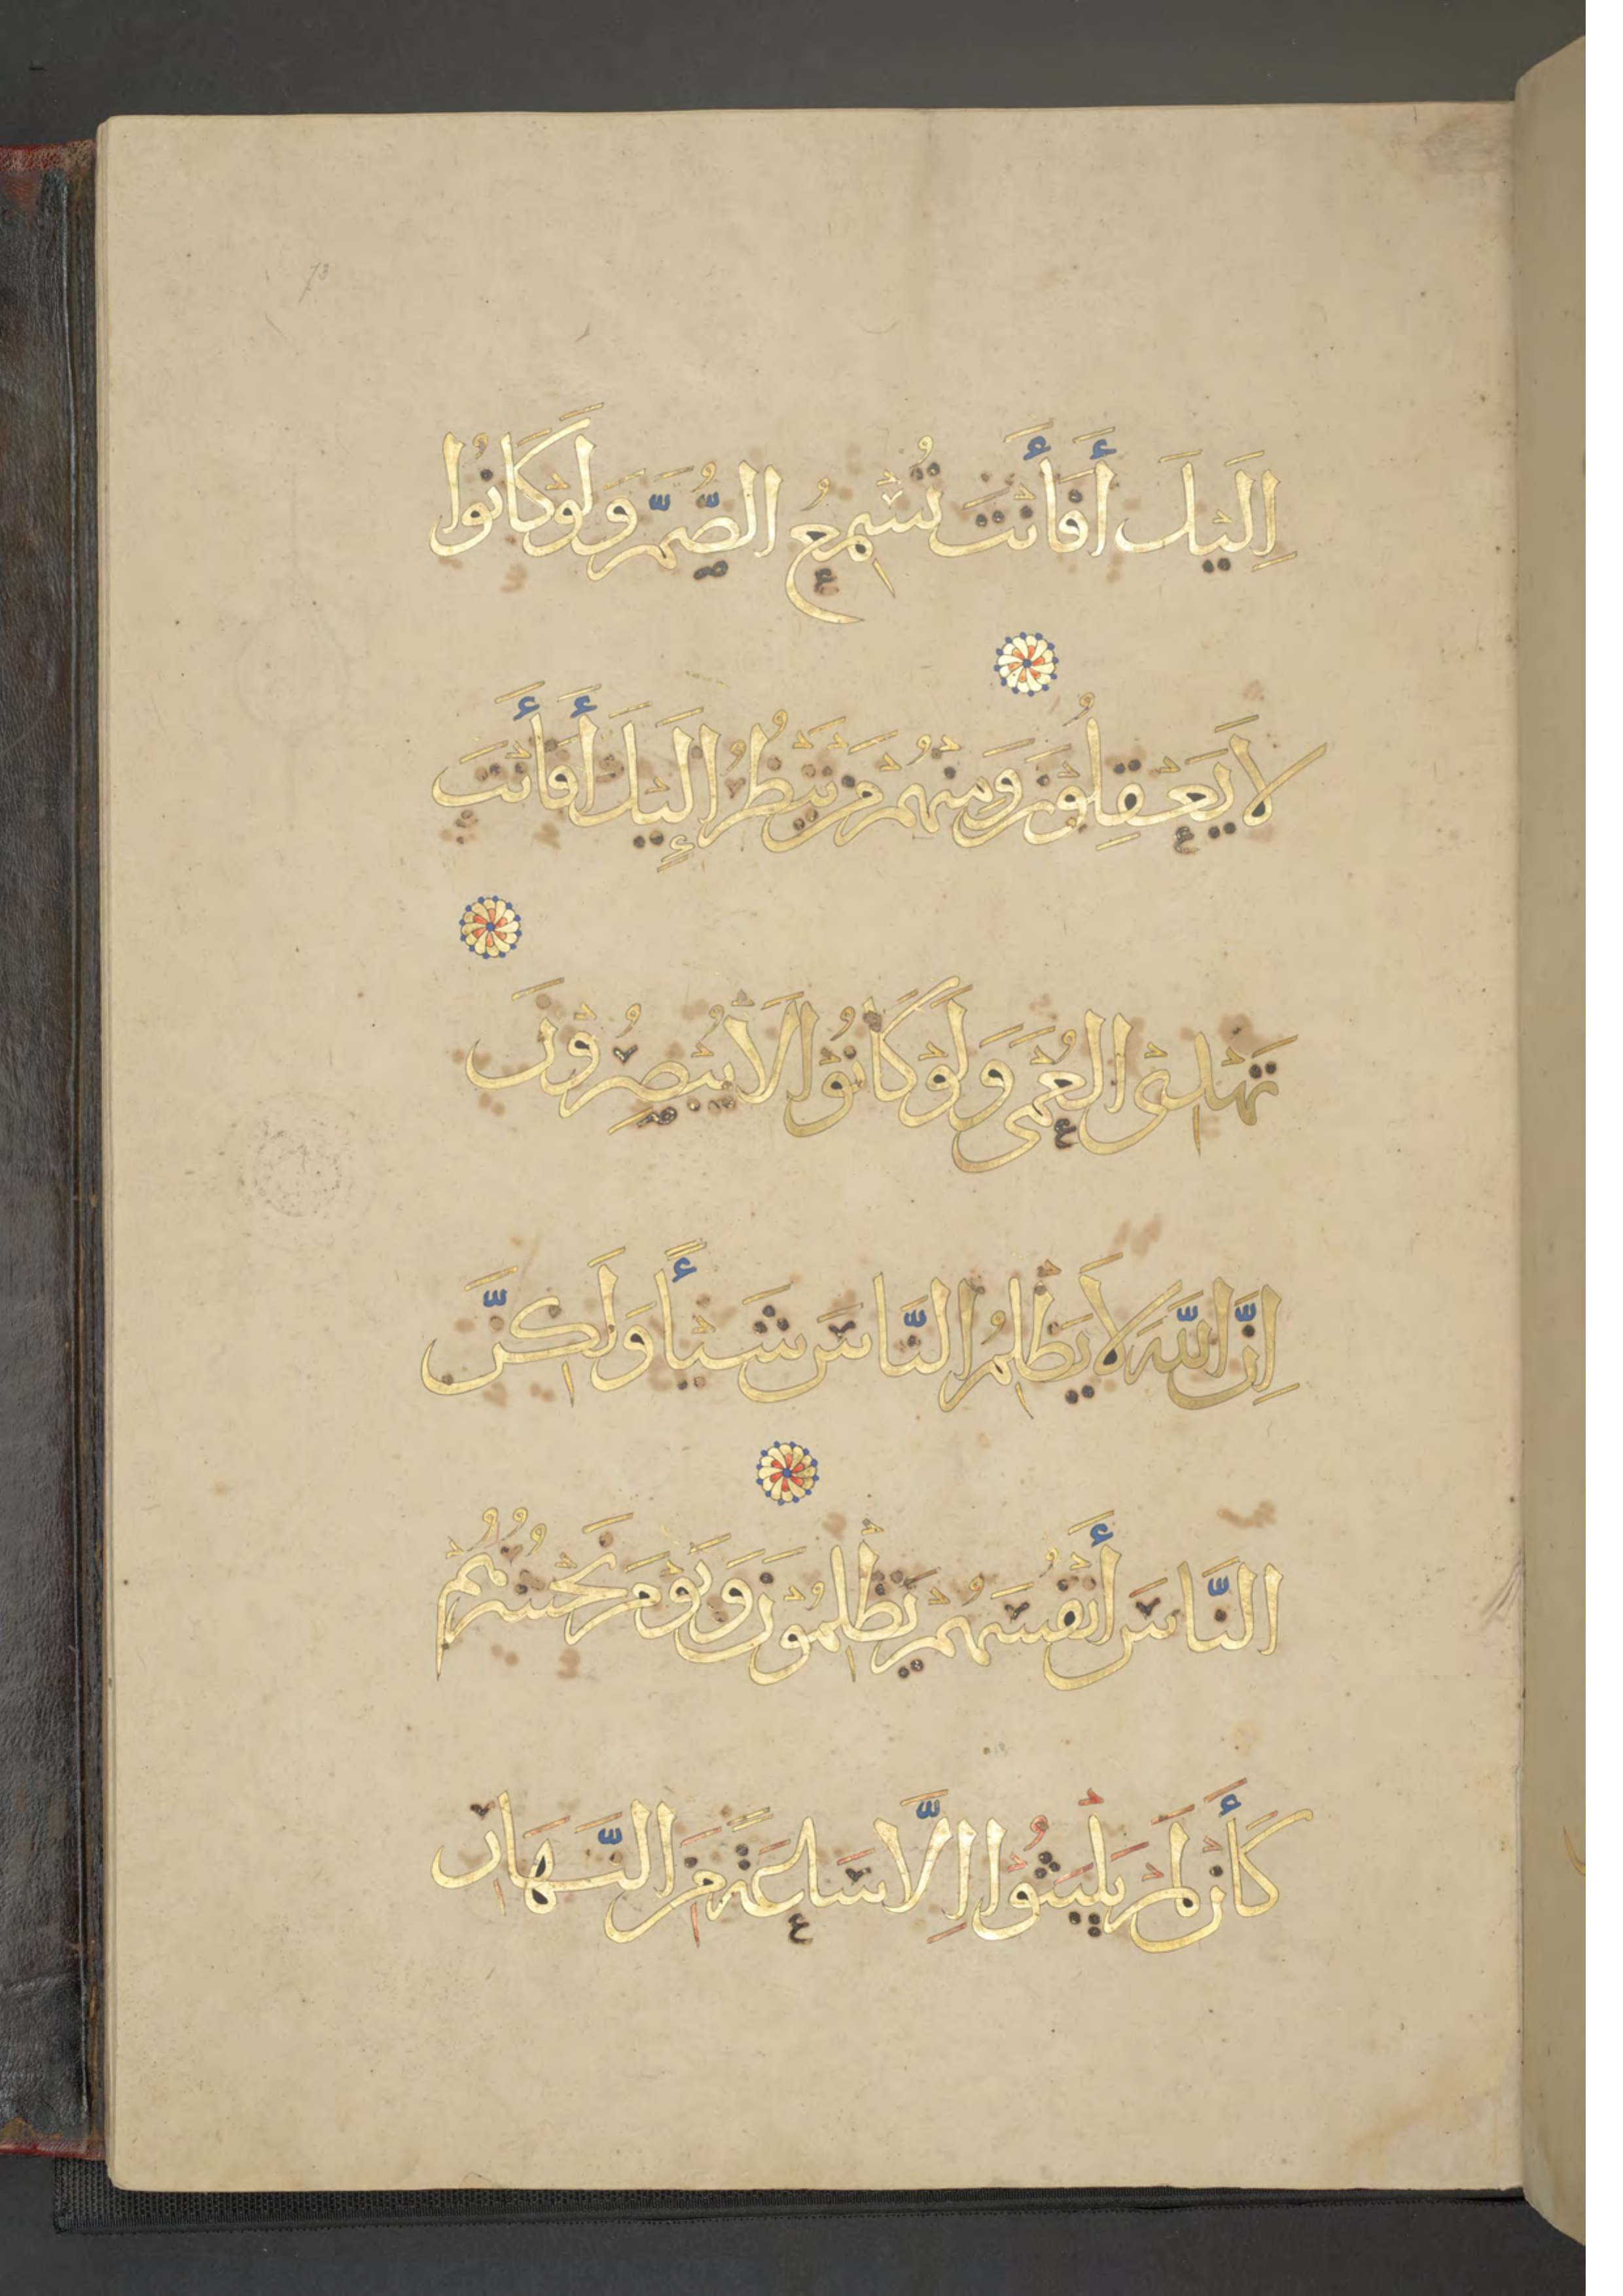 73
اِلَيْكَ أَفَأَنْتَ تُسْمِعُ الصُّمَّ وَلَوْ كَانُوا
لَا يَعْقِلُوْنَ وَمِنْهُمْ مَنْ يَنْظُرُ إِلَيْكَ أَفَأَنْتَ
تَهْدِى الْعُمْىَ وَلَوْ كَانُوْا لَا يُبْصِرُوْنَ
اِنَّ اللَّهَ لَا يَظْلِمُ النَّاسَ شَيْأً وَلَكِنَّ
النَّاسَ أَنْفُسَهُمْ يَظْلِمُوْنَ وَيَوْمَ نَحْشُرُهُمْ
كَأَنْ لَمْ يَلْبَثُوْا اِلَّا سَاعَةً مِنَ النَّهَارِ